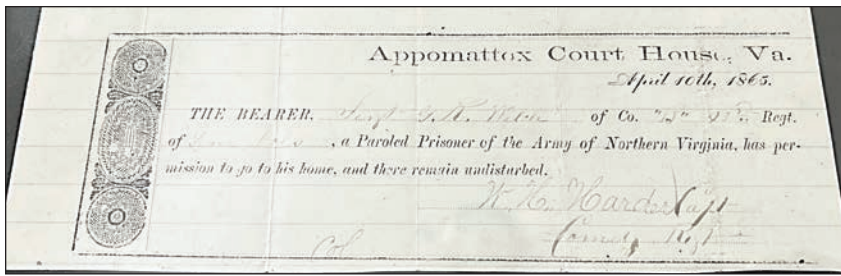 Appomattox Court House, Va.
April 10th, 1865.
THE BEARER, Sergt of Co. Regt.
of , a Paroled Prisoner of the Army of Northern Virginia, has per-
mission to go to his home, and there remain undisturbed.
W. H. Harder Capt
Comdg Regt
Col